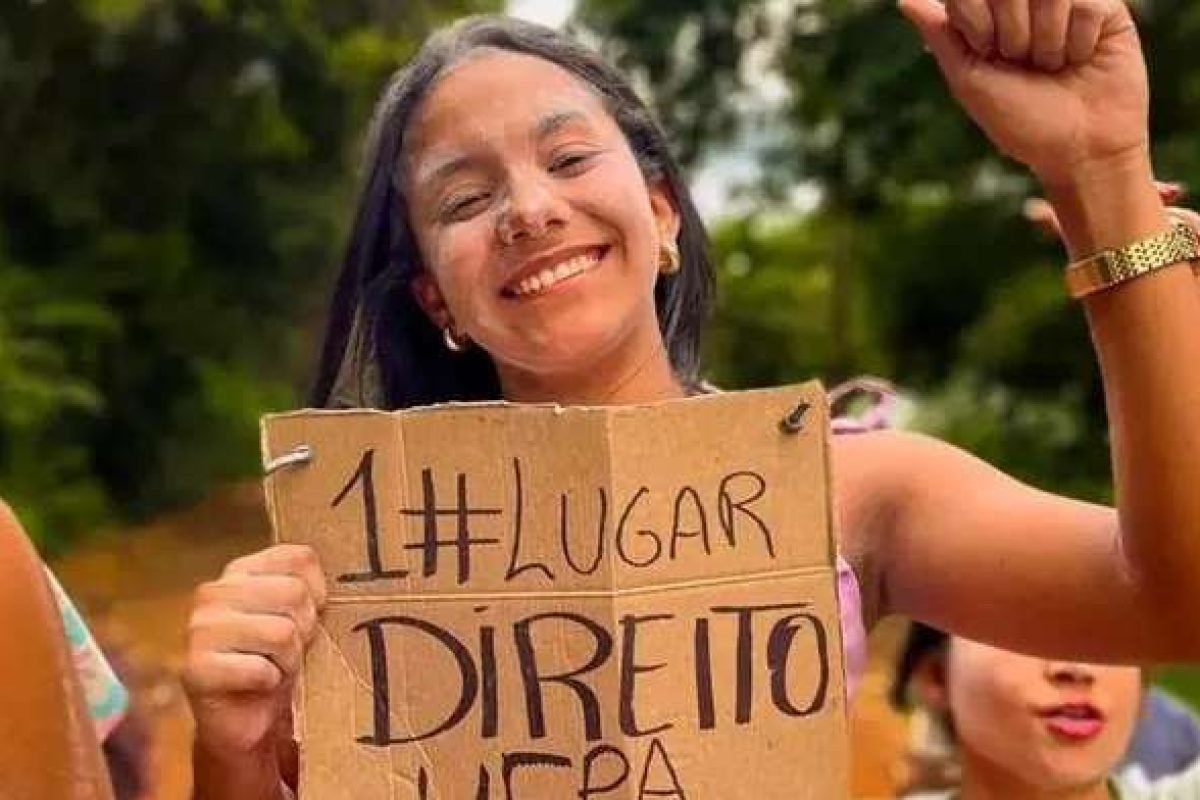 1# LUGAR
DIREITO
UFPA